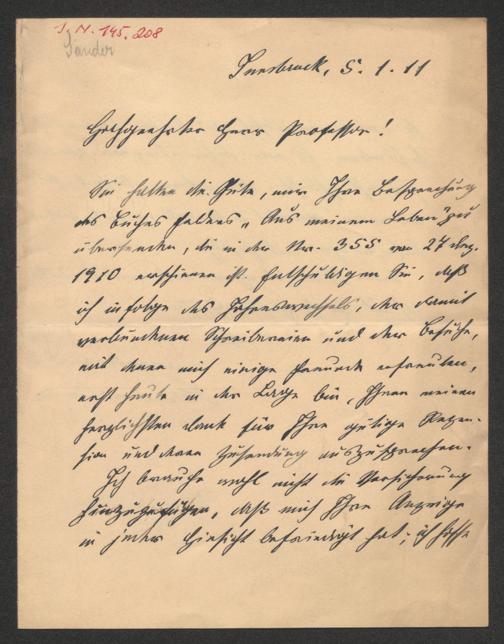 I. N. 145.208
Sander
Innsbruck, 5. 1. 11
Hochgeehrter Herr Professor!
Sie hatten die Güte, mir Ihre Besprechung
des Buches Felders „Aus meinem Leben" zu
übersenden, die in der Nr. 355 vom 24. Dez.
1910 erschienen ist. Entschuldigen Sie, daß
ich infolge des Jahreswechsels, der damit
verbundenen Schreibereien und der Besuche,
mit denen mich einige Freunde erfreuten,
erst heute in der Lage bin, Ihnen meinen
herzlichsten Dank für Ihre gütige Rezen-
sion und deren Zusendung auszusprechen.
Ich brauche wohl nicht die Versicherung
hinzuzufügen, daß mich Ihre Anzeige
in jeder Hinsicht befriedigt hat; ich hoffe